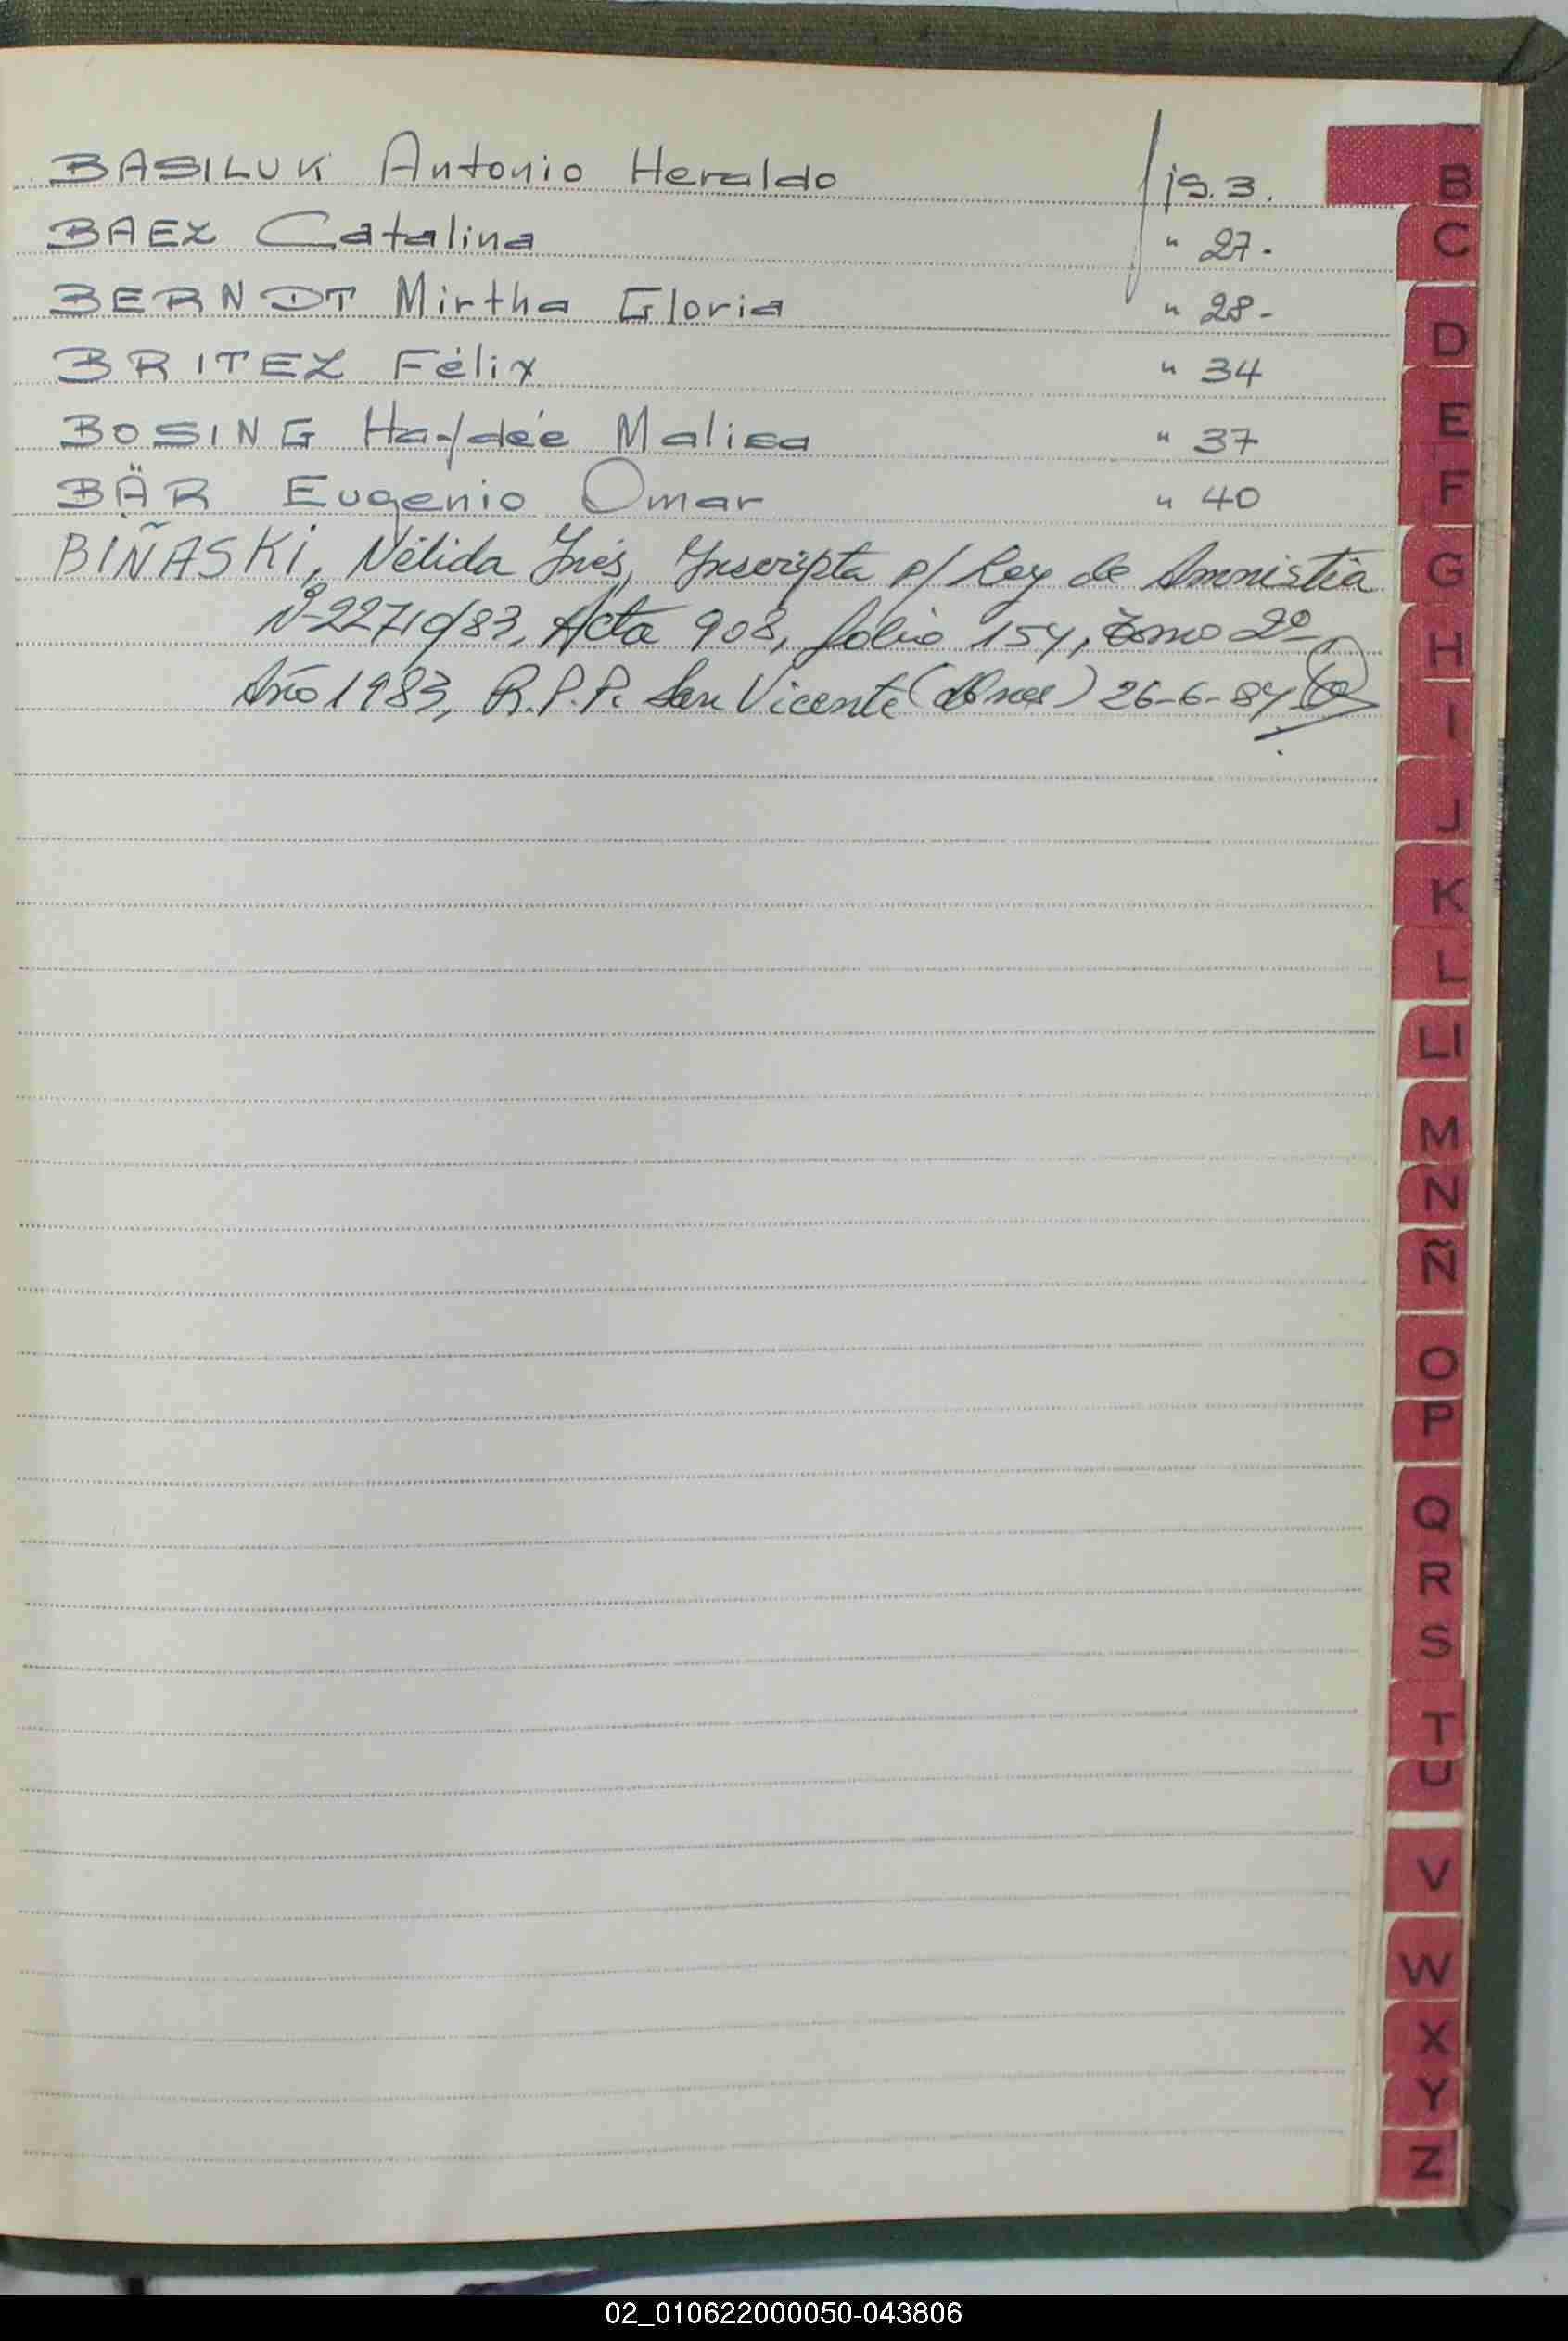 BASILUK Antonio Heraldo fjs. 3.
BAEZ Catalina " 27-
BERNDT Mirtha Gloria " 28-
BRITEZ Félix " 34
BOSING Haydée Malisa " 37
BÄR Eugenio Omar " 40
BIÑASKI, Nélida Inés, Inscripta p/ Ley de Amnistia
Nº 22710/83, Acta 908, folio 154, tomo 2º
Año 1983, R.P.P. San Vicente 26-6-84
B
C
D
E
F
G
H
I
J
K
L
Ll
M
N
Ñ
O
P
Q
R
S
T
U
V
W
X
Y
Z
02_010622000050-043806